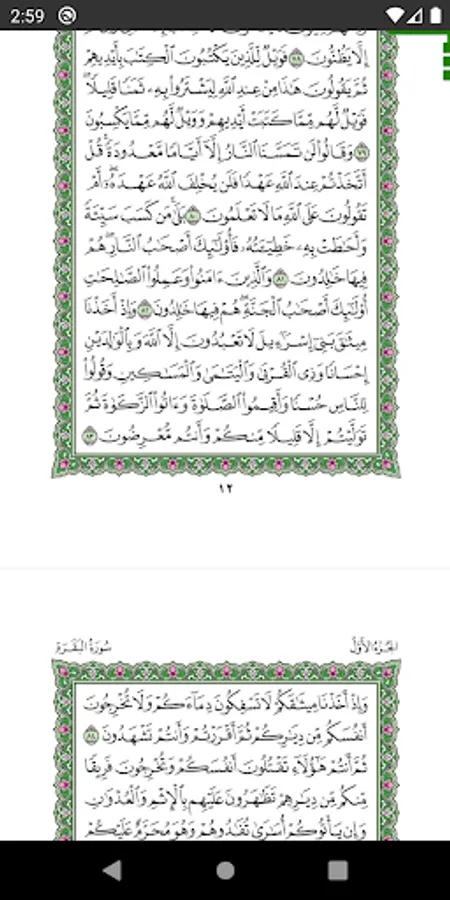 2:59
إِلَّا يَظُنُّونَ ٧٨ فَوَيْلٌ لِّلَّذِينَ يَكْتُبُونَ ٱلْكِتَٰبَ بِأَيْدِيهِمْ
ثُمَّ يَقُولُونَ هَٰذَا مِنْ عِندِ ٱللَّهِ لِيَشْتَرُوا۟ بِهِۦ ثَمَنًا قَلِيلًا ۖ
فَوَيْلٌ لَّهُم مِّمَّا كَتَبَتْ أَيْدِيهِمْ وَوَيْلٌ لَّهُم مِّمَّا يَكْسِبُونَ
٧٩ وَقَالُوا۟ لَن تَمَسَّنَا ٱلنَّارُ إِلَّآ أَيَّامًا مَّعْدُودَةً ۚ قُلْ
أَتَّخَذْتُمْ عِندَ ٱللَّهِ عَهْدًا فَلَن يُخْلِفَ ٱللَّهُ عَهْدَهُۥٓ ۖ أَمْ
تَقُولُونَ عَلَى ٱللَّهِ مَا لَا تَعْلَمُونَ ٨٠ بَلَىٰ مَن كَسَبَ سَيِّئَةً
وَأَحَٰطَتْ بِهِۦ خَطِيٓـَٔتُهُۥ فَأُو۟لَٰٓئِكَ أَصْحَٰبُ ٱلنَّارِ ۖ هُمْ
فِيهَا خَٰلِدُونَ ٨١ وَٱلَّذِينَ ءَامَنُوا۟ وَعَمِلُوا۟ ٱلصَّٰلِحَٰتِ
أُو۟لَٰٓئِكَ أَصْحَٰبُ ٱلْجَنَّةِ ۖ هُمْ فِيهَا خَٰلِدُونَ ٨٢ وَإِذْ أَخَذْنَا
مِيثَٰقَ بَنِىٓ إِسْرَٰٓءِيلَ لَا تَعْبُدُونَ إِلَّا ٱللَّهَ وَبِٱلْوَٰلِدَيْنِ
إِحْسَانًا وَذِى ٱلْقُرْبَىٰ وَٱلْيَتَٰمَىٰ وَٱلْمَسَٰكِينِ وَقُولُوا۟
لِلنَّاسِ حُسْنًا وَأَقِيمُوا۟ ٱلصَّلَوٰةَ وَءَاتُوا۟ ٱلزَّكَوٰةَ ثُمَّ
تَوَلَّيْتُمْ إِلَّا قَلِيلًا مِّنكُمْ وَأَنتُم مُّعْرِضُونَ ٨٣
١٢
الجُزْءُ الأَوَّلُ سُورَةُ البَقَرَةِ
وَإِذْ أَخَذْنَا مِيثَٰقَكُمْ لَا تَسْفِكُونَ دِمَآءَكُمْ وَلَا تُخْرِجُونَ
أَنفُسَكُم مِّن دِيَٰرِكُمْ ثُمَّ أَقْرَرْتُمْ وَأَنتُمْ تَشْهَدُونَ ٨٤
ثُمَّ أَنتُمْ هَٰٓؤُلَآءِ تَقْتُلُونَ أَنفُسَكُمْ وَتُخْرِجُونَ فَرِيقًا
مِّنكُم مِّن دِيَٰرِهِمْ تَظَٰهَرُونَ عَلَيْهِم بِٱلْإِثْمِ وَٱلْعُدْوَٰنِ
وَإِن يَأْتُوكُمْ أُسَٰرَىٰ تُفَٰدُوهُمْ وَهُوَ مُحَرَّمٌ عَلَيْكُمْ